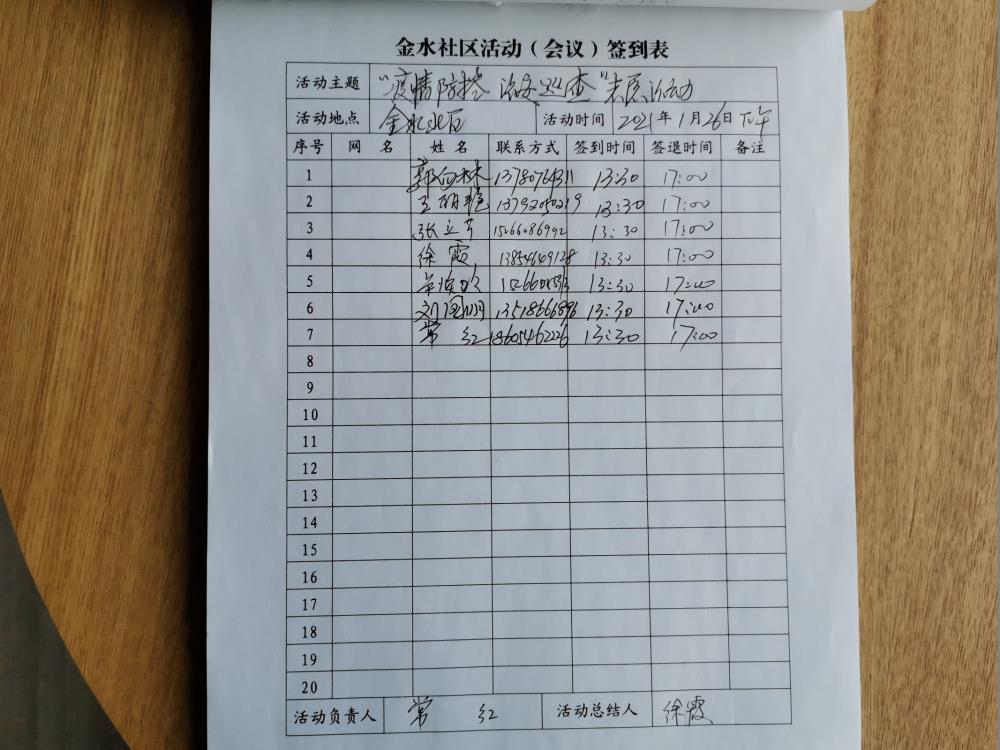 金水社区活动（会议）签到表
活动主题 "疫情防控 治安巡查"志愿活动
活动地点 金水小区 活动时间 2021年1月26日下午
序号 网 名 姓 名 联系方式 签到时间 签退时间 备注
1 13780764311 13:30 17:00
2 王丽艳 13792050219 13:30 17:00
3 张立芹 15266086992 13:30 17:00
4 徐霞 13854649128 13:30 17:00
5 13:30 17:00
6 刘国明 13518666896 13:30 17:00
7 常红 18605462226 13:30 17:00
8
9
10
11
12
13
14
15
16
17
18
19
20
活动负责人 常红 活动总结人 徐霞